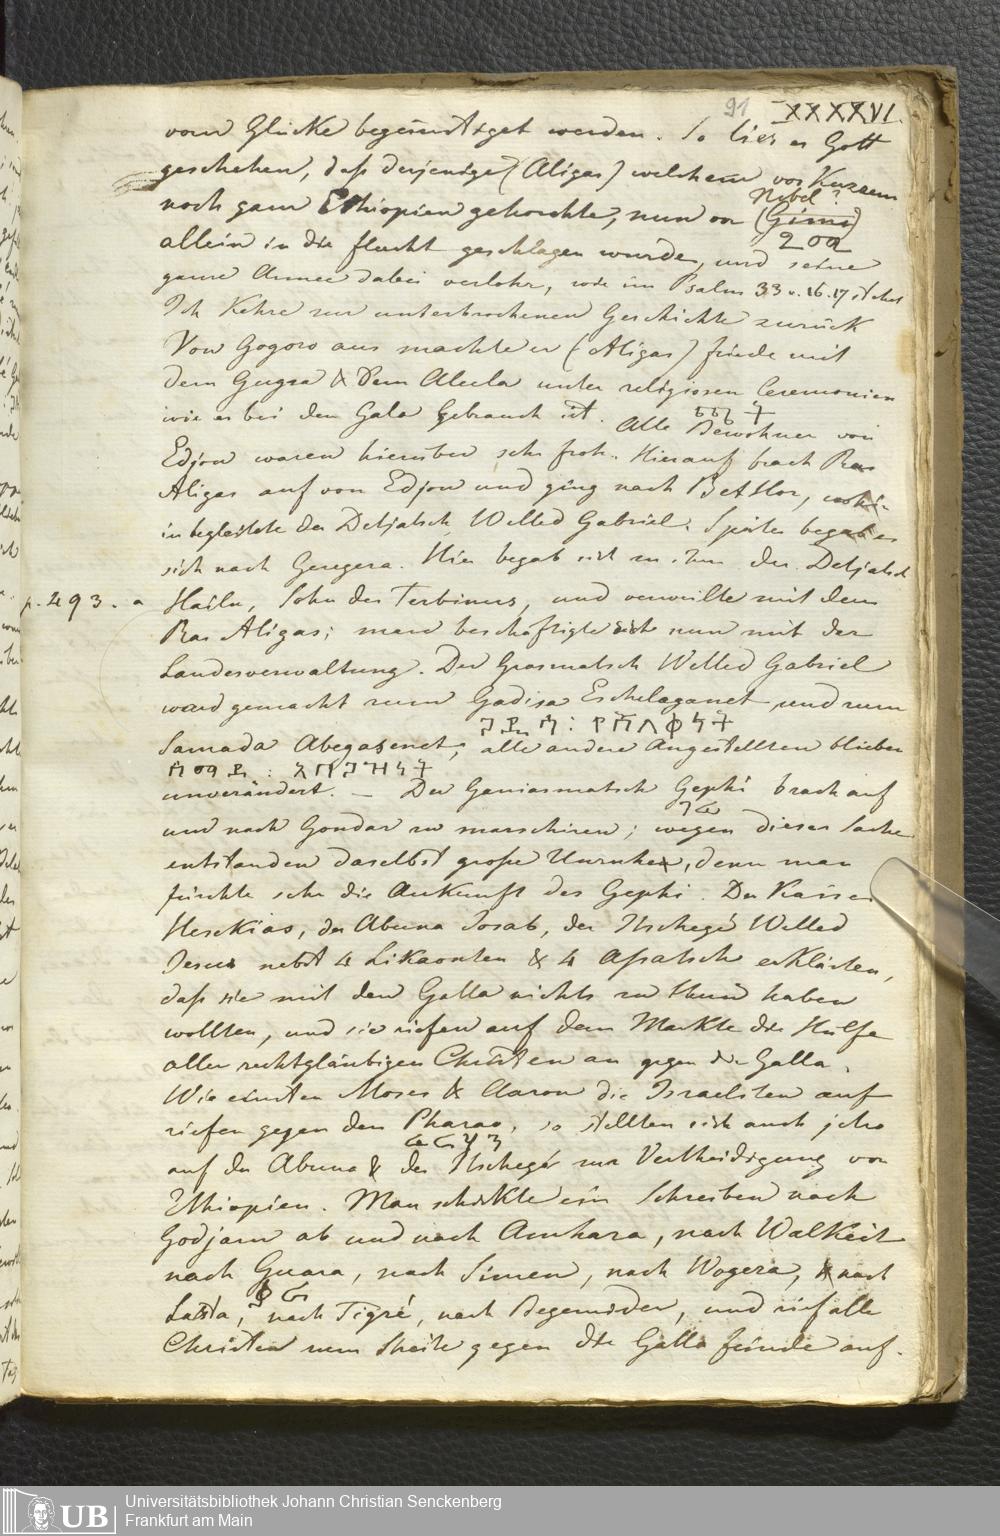 91 XXXXVI.
vom Glücke begünstiget werden. So lies es Gott
geschehen, daß derjenige (Aligas) welchem vor Kurzem
Nebel?
noch ganz Ethiopien gehorchte, nun von (Gimi)
allein in die flucht geschlagen wurde, und seine
ganze Armee dabei verlohr, wie im Psalm 33 v. 16.17 stehet
Ich Kehre zur unterbrochenen Geschichte zurück
Von Gogoro aus machte er (Aligas) friede mit
dem Gugsa & dem Alula unter religiosen Ceremonien
wie es bei den Gala Gebrauch ist. Alle Bewohner von
Edjou waren hierüber sehr froh. Hierauf brach Ras
Aligas auf von Edjou und ging nach Bet Hor,
in begleitete der Detjatsch Welled Gabriel. Später begab er
sich nach Geregera. Hier begab sich zu ihm der Detjatsch
p. 293. a Hailu, Sohn des Terbinus, und verweilte mit dem
Ras Aligas; man beschäftigte sich nun mit der
Landesverwaltung. Der Grasmatsch Welled Gabriel
ward gemacht zum Gadisa Eschelaganet und zum
Samada Abegasenet, alle andere Angestellten blieben
unverändert. — Der Geniasmatsch Gephi brach auf
und nach Gondar zu marschiren; wegen dieser Sache
entstanden daselbst große Unruhen, denn man
fürchte sehr die Ankunft des Gephi. Der Kaiser
Heskias, der Abuna Josab, der Itschegé Welled
Jesus nebst 4 Likaonten & 4 Asatsch erklärten,
daß sie mit den Galla nichts zu thun haben
wollten, und sie riefen auf dem Markte die Hülfe
aller rechtgläubigen Christen an gegen die Galla.
Wie einsten Moses & Aaron die Israeliten auf
riefen gegen den Pharao, so stellten sich auch jetzo
auf der Abuna & der Itschegé zur Vertheidigung von
Ethiopien. Man schikte ein Schreiben nach
Godjam ab und nach Amhara, nach Walkeit
nach Guara, nach Simen, nach Wogera, nach
Lasta, nach Tigré, nach Begemider, und rief alle
Christen zum Streite gegen die Galla feinde auf.
UB
Universitätsbibliothek Johann Christian Senckenberg
Frankfurt am Main